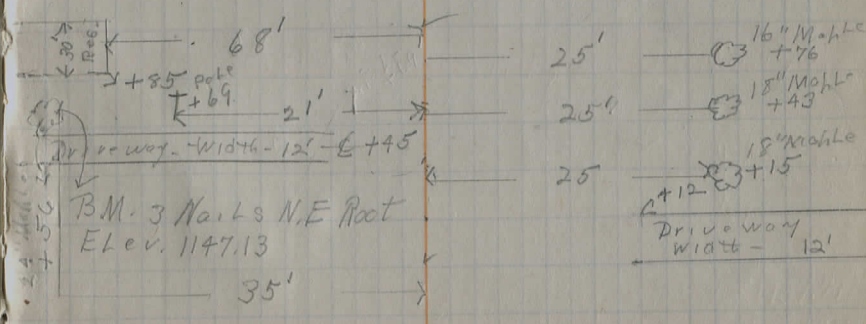 30'
Res.
68'
+85
pole
+69
21'
Driveway - Width - 12' - ℄ +45
24" Maple
+56
B.M. 3 Nails N.E Root
Elev. 1147.13
35'
25'
16" Maple
+76
25'
18" Maple
+43
25
18" Maple
+15
+12
Driveway
Width - 12'